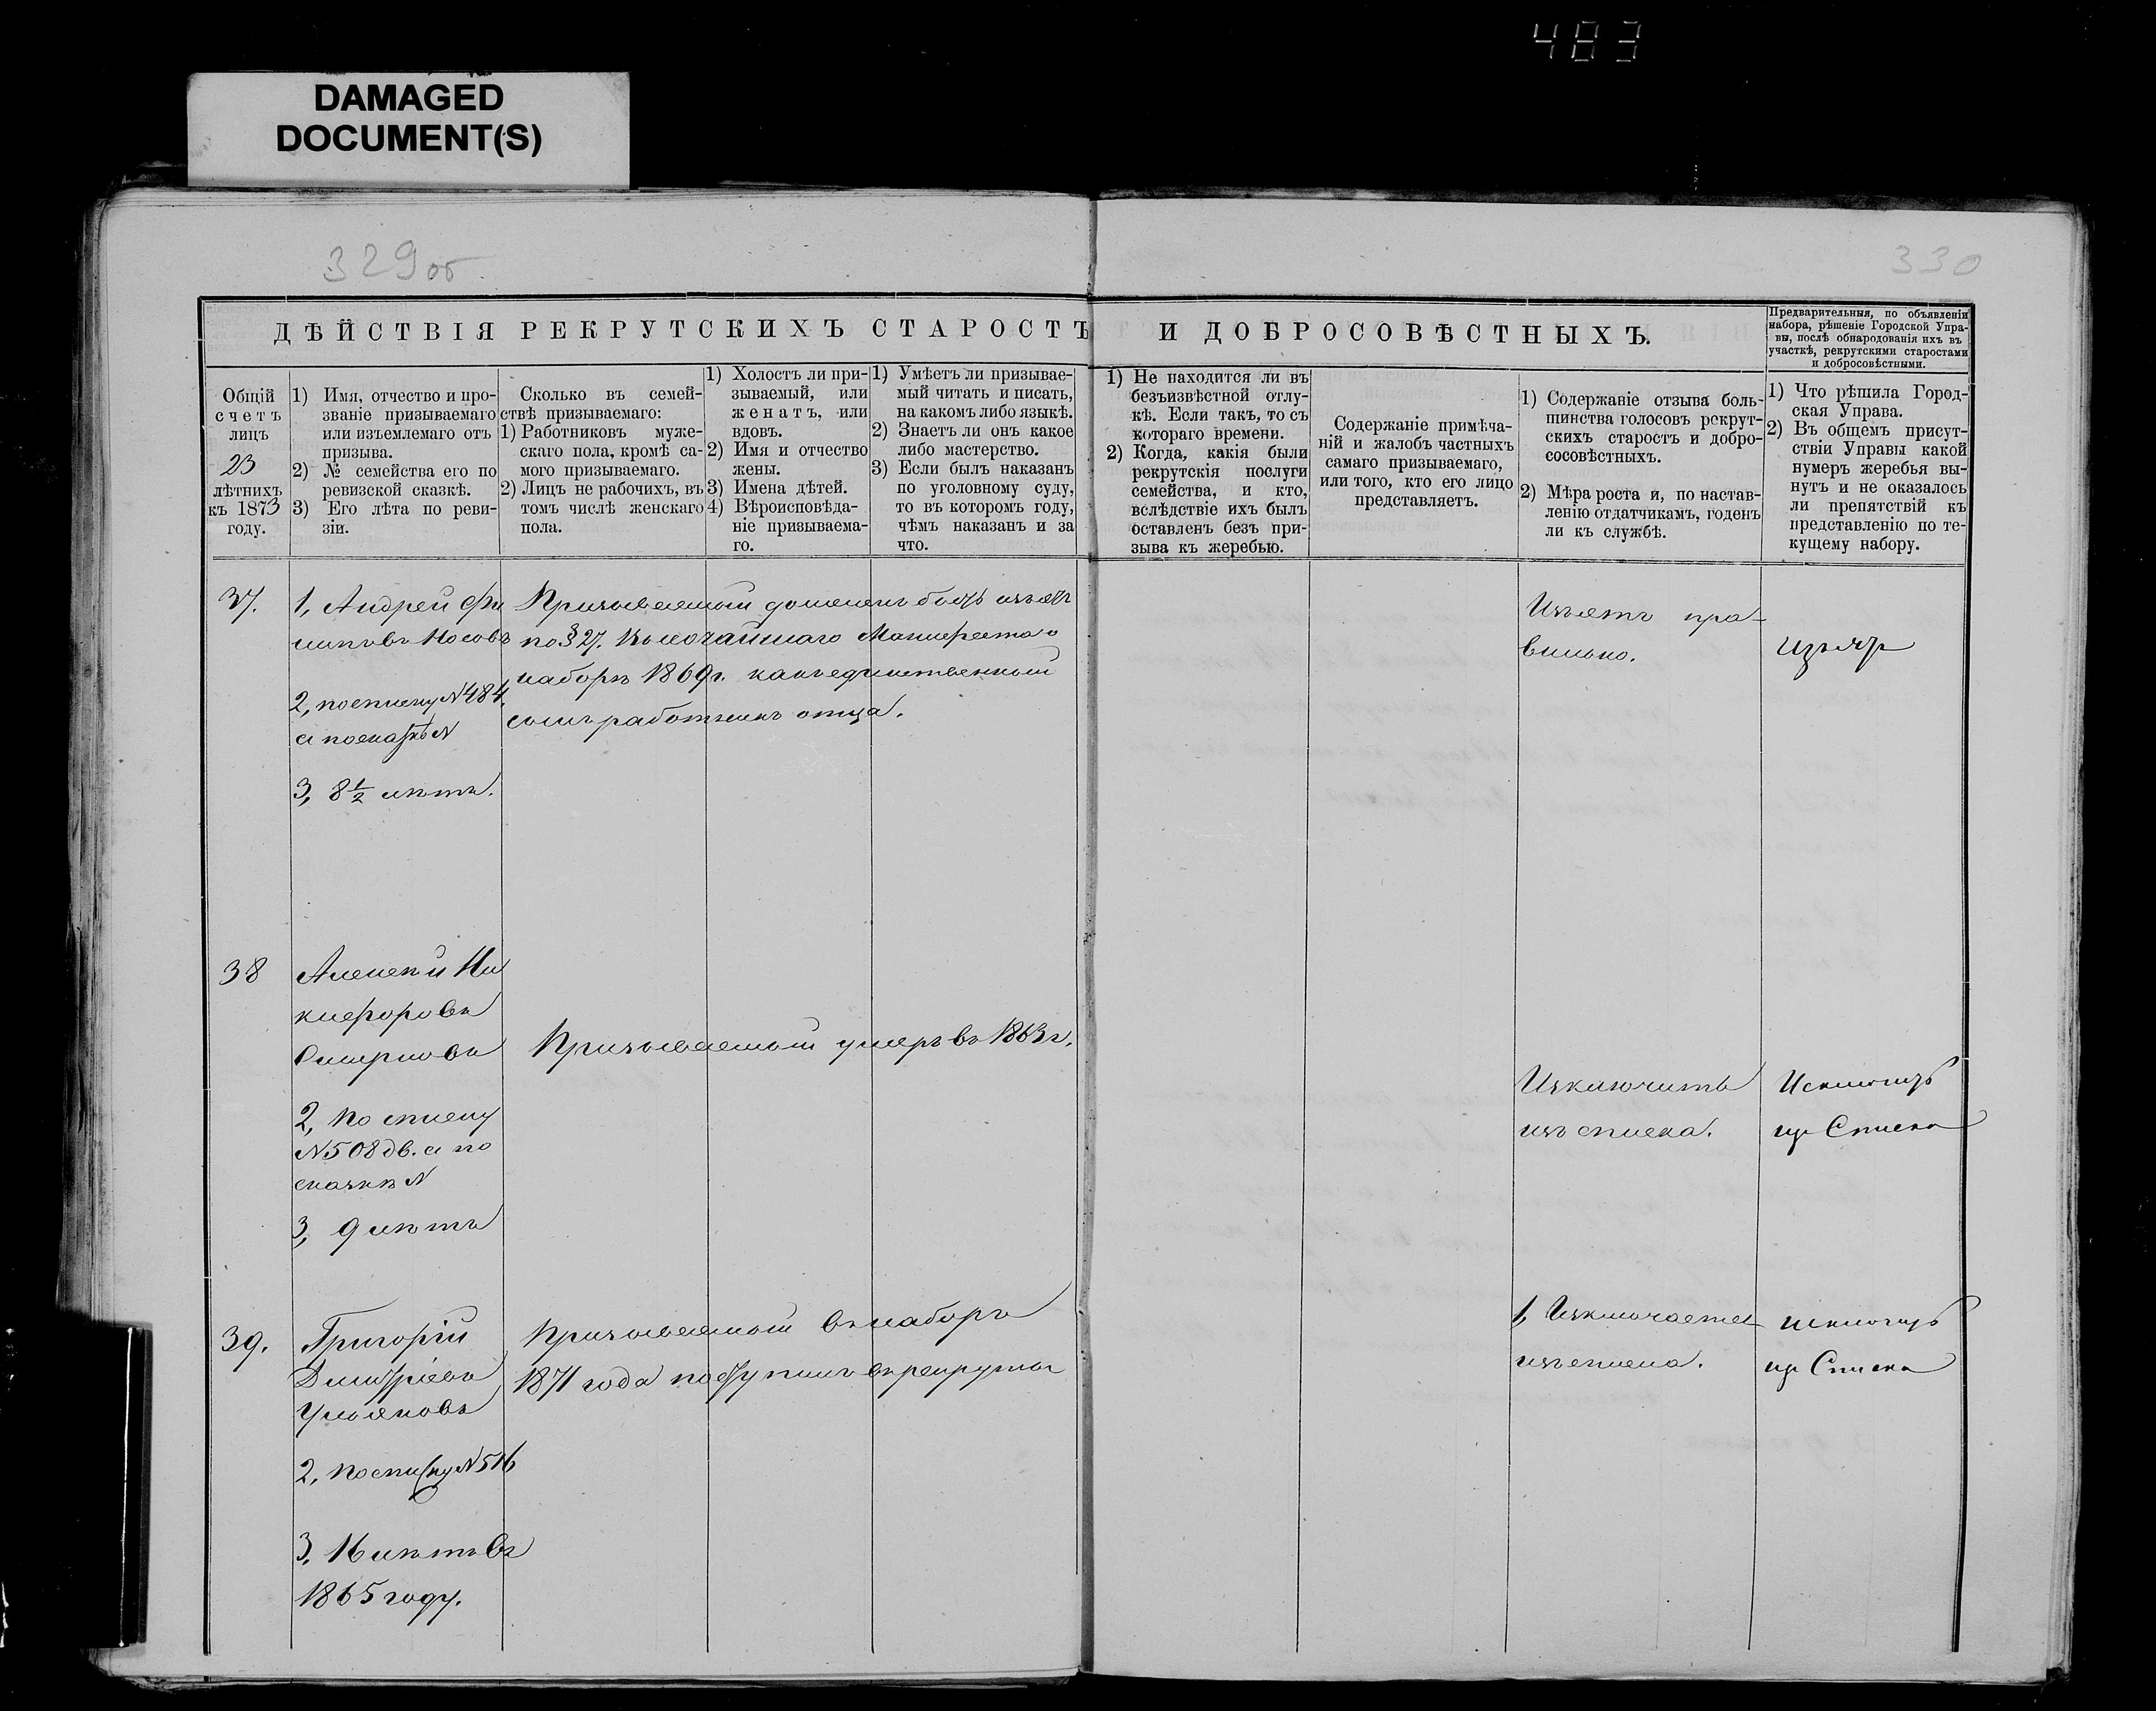 483
DAMAGED
DOCUMENT(S)
329об
330
ДѢЙСТВІЯ РЕКРУТСКИХЪ СТАРОСТЪ И ДОБРОСОВѢСТНЫХЪ.
Предварительныя, по объявленіи
набора, рѣшеніе Городской Упра-
вы, послѣ обнародованія ихъ въ
участкѣ, рекрутскими старостами
и добросовѣстными.
Общій
счетъ
лицъ
23
лѣтнихъ
къ 1873
году.
1) Имя, отчество и про-
званіе призываемаго
или изъемлемаго отъ
призыва.
2) № семейства его по
ревизской сказкѣ.
3) Его лѣта по реви-
зіи.
Сколько въ семей-
ствѣ призываемаго:
1) Работниковъ муже-
скаго пола, кромѣ са-
мого призываемаго.
2) Лицъ не рабочихъ, въ
томъ числѣ женскаго
пола.
1) Холостъ ли при-
зываемый, или
женатъ, или
вдовъ.
2) Имя и отчество
жены.
3) Имена дѣтей.
4) Вѣроисповѣда-
ніе призываема-
го.
1) Умѣетъ ли призывае-
мый читать и писать,
на какомъ либо языкѣ.
2) Знаетъ ли онъ какое
либо мастерство.
3) Если былъ наказанъ
по уголовному суду,
то въ которомъ году,
чѣмъ наказанъ и за
что.
1) Не находится ли въ
безъизвѣстной отлу-
кѣ. Если такъ, то съ
котораго времени.
2) Когда, какія были
рекрутскія послуги
семейства, и кто,
вслѣдствіе ихъ былъ
оставленъ безъ при-
зыва къ жеребью.
Содержаніе примѣча-
ній и жалобъ частныхъ
самаго призываемаго,
или того, кто его лицо
представляетъ.
1) Содержаніе отзыва боль-
шинства голосовъ рекрут-
скихъ старостъ и добро-
сосовѣстныхъ.
2) Мѣра роста и, по настав-
ленію отдатчикамъ, годенъ
ли къ службѣ.
1) Что рѣшила Город-
ская Управа.
2) Въ общемъ присут-
ствіи Управы какой
нумеръ жеребья вы-
нутъ и не оказалось
ли препятствій къ
представленію по те-
кущему набору.
37.
1, Андрей Фи
липовъ Носовъ
2, по списку №484.
а по сказкѣ №
3, 8½ лѣтъ.
Призываемый долженъ быть изъятъ
по § 27. Высочайшаго Манифеста о
наборѣ 1869г. какъ единственный
сынъ работникъ отца.
Изъятъ пра-
вильно.
изъят
38
Алексѣй Ни
кифоровъ
Смирновъ
2, по списку
№508 дв. а по
сказкѣ №
3, 9 лѣтъ
Призываемый умеръ въ 1863г.
Изключить
изъ списка.
Исключить
из Списка
39.
Григорій
Дмитріевъ
Ульяновъ
2, по списку №516
3, 16 лѣтъ въ
1865 году.
Призываемый въ наборъ
1871 года поступилъ въ рекруты
1, Изключается
изъ списка.
исключить
из Списка